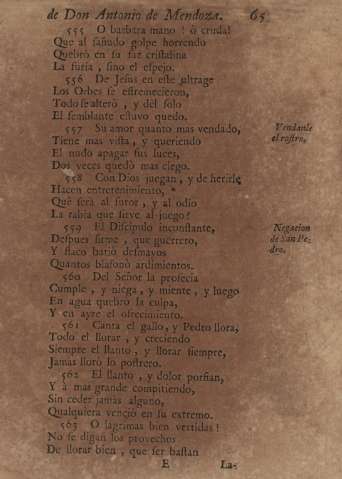 de Don Antonio de Mendoza. 65
555 O barbara mano! ò cruda!
Que al sañudo golpe horrendo
Quebrò en su faz cristalina
La furia, sino el espejo.
556 De Jesus en este ultrage
Los Orbes se estremecieron,
Todo se alterò, y del solo
El semblante estuvo quedo.
557 Su amor quanto mas vendado,
Tiene mas vista, y queriendo
El nudo apagar sus luces,
Dos veces quedò mas ciego.
Vendanle
el rostro.
558 Con Dios juegan, y de herirle
Hacen entretenimiento,
Què serà al furor, y al odio
La rabia que sirve al juego?
559 El Discipulo inconstante,
Despues firme, que guerrero,
Y flaco batiò desmayos
Quantos blasonò ardimientos.
Negacion
de San Pe-
dro.
560 Del Señor la profecia
Cumple, y niega, y miente, y luego
En agua quebrò la culpa,
Y en ayre el ofrecimiento.
561 Canta el gallo, y Pedro llora,
Todo el llorar, y creciendo
Siempre el llanto, y llorar siempre,
Jamas llorò lo postrero.
562 El llanto, y dolor porfian,
Y à mas grande compitiendo,
Sin ceder jamàs alguno,
Qualquiera venciò en su extremo.
563 O lagrimas bien vertidas!
No se digan los provechos
De llorar bien, que ser bastan
E Las